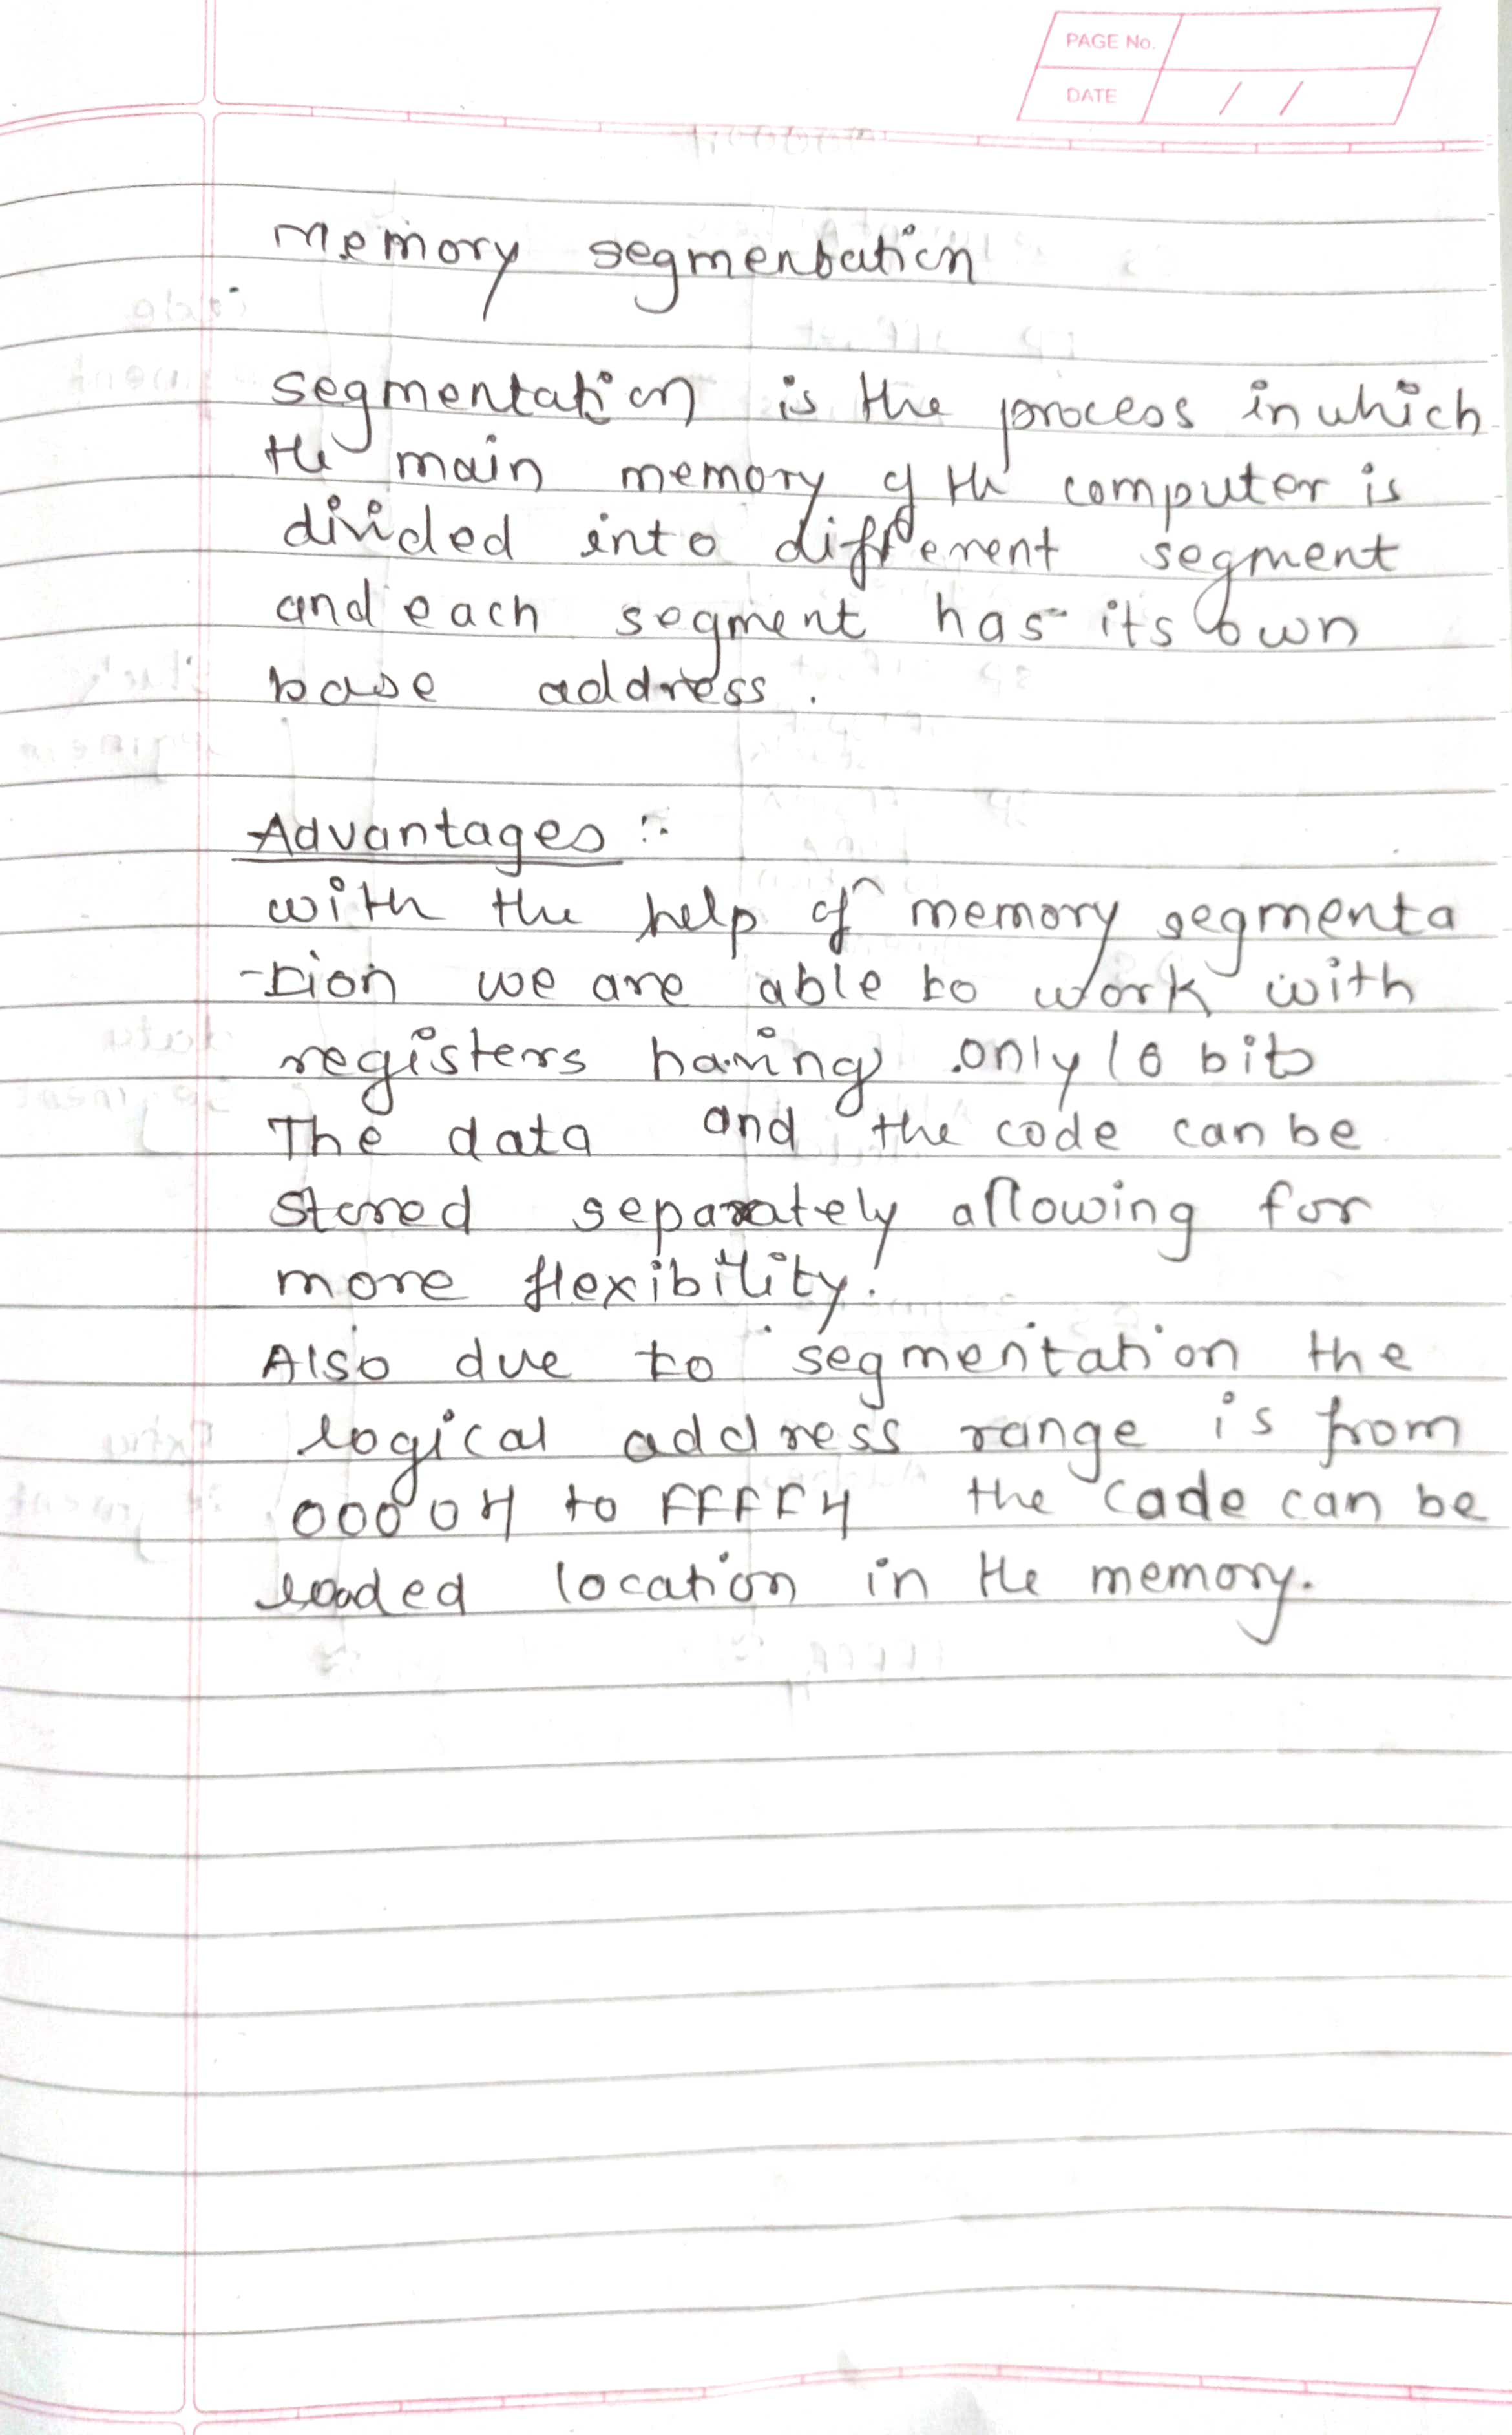 PAGE No.
DATE / /
Memory segmentation
segmentation is the process in which
the main memory of the computer is
divided into different segment
and each segment has its own
base address.
Advantages :-
with the help of memory segmenta
-tion we are able to work with
registers having only 16 bits
The data and the code can be
stored separately allowing for
more flexibility.
Also due to segmentation the
logical address range is from
0000H to FFFFH the code can be
loaded location in the memory.